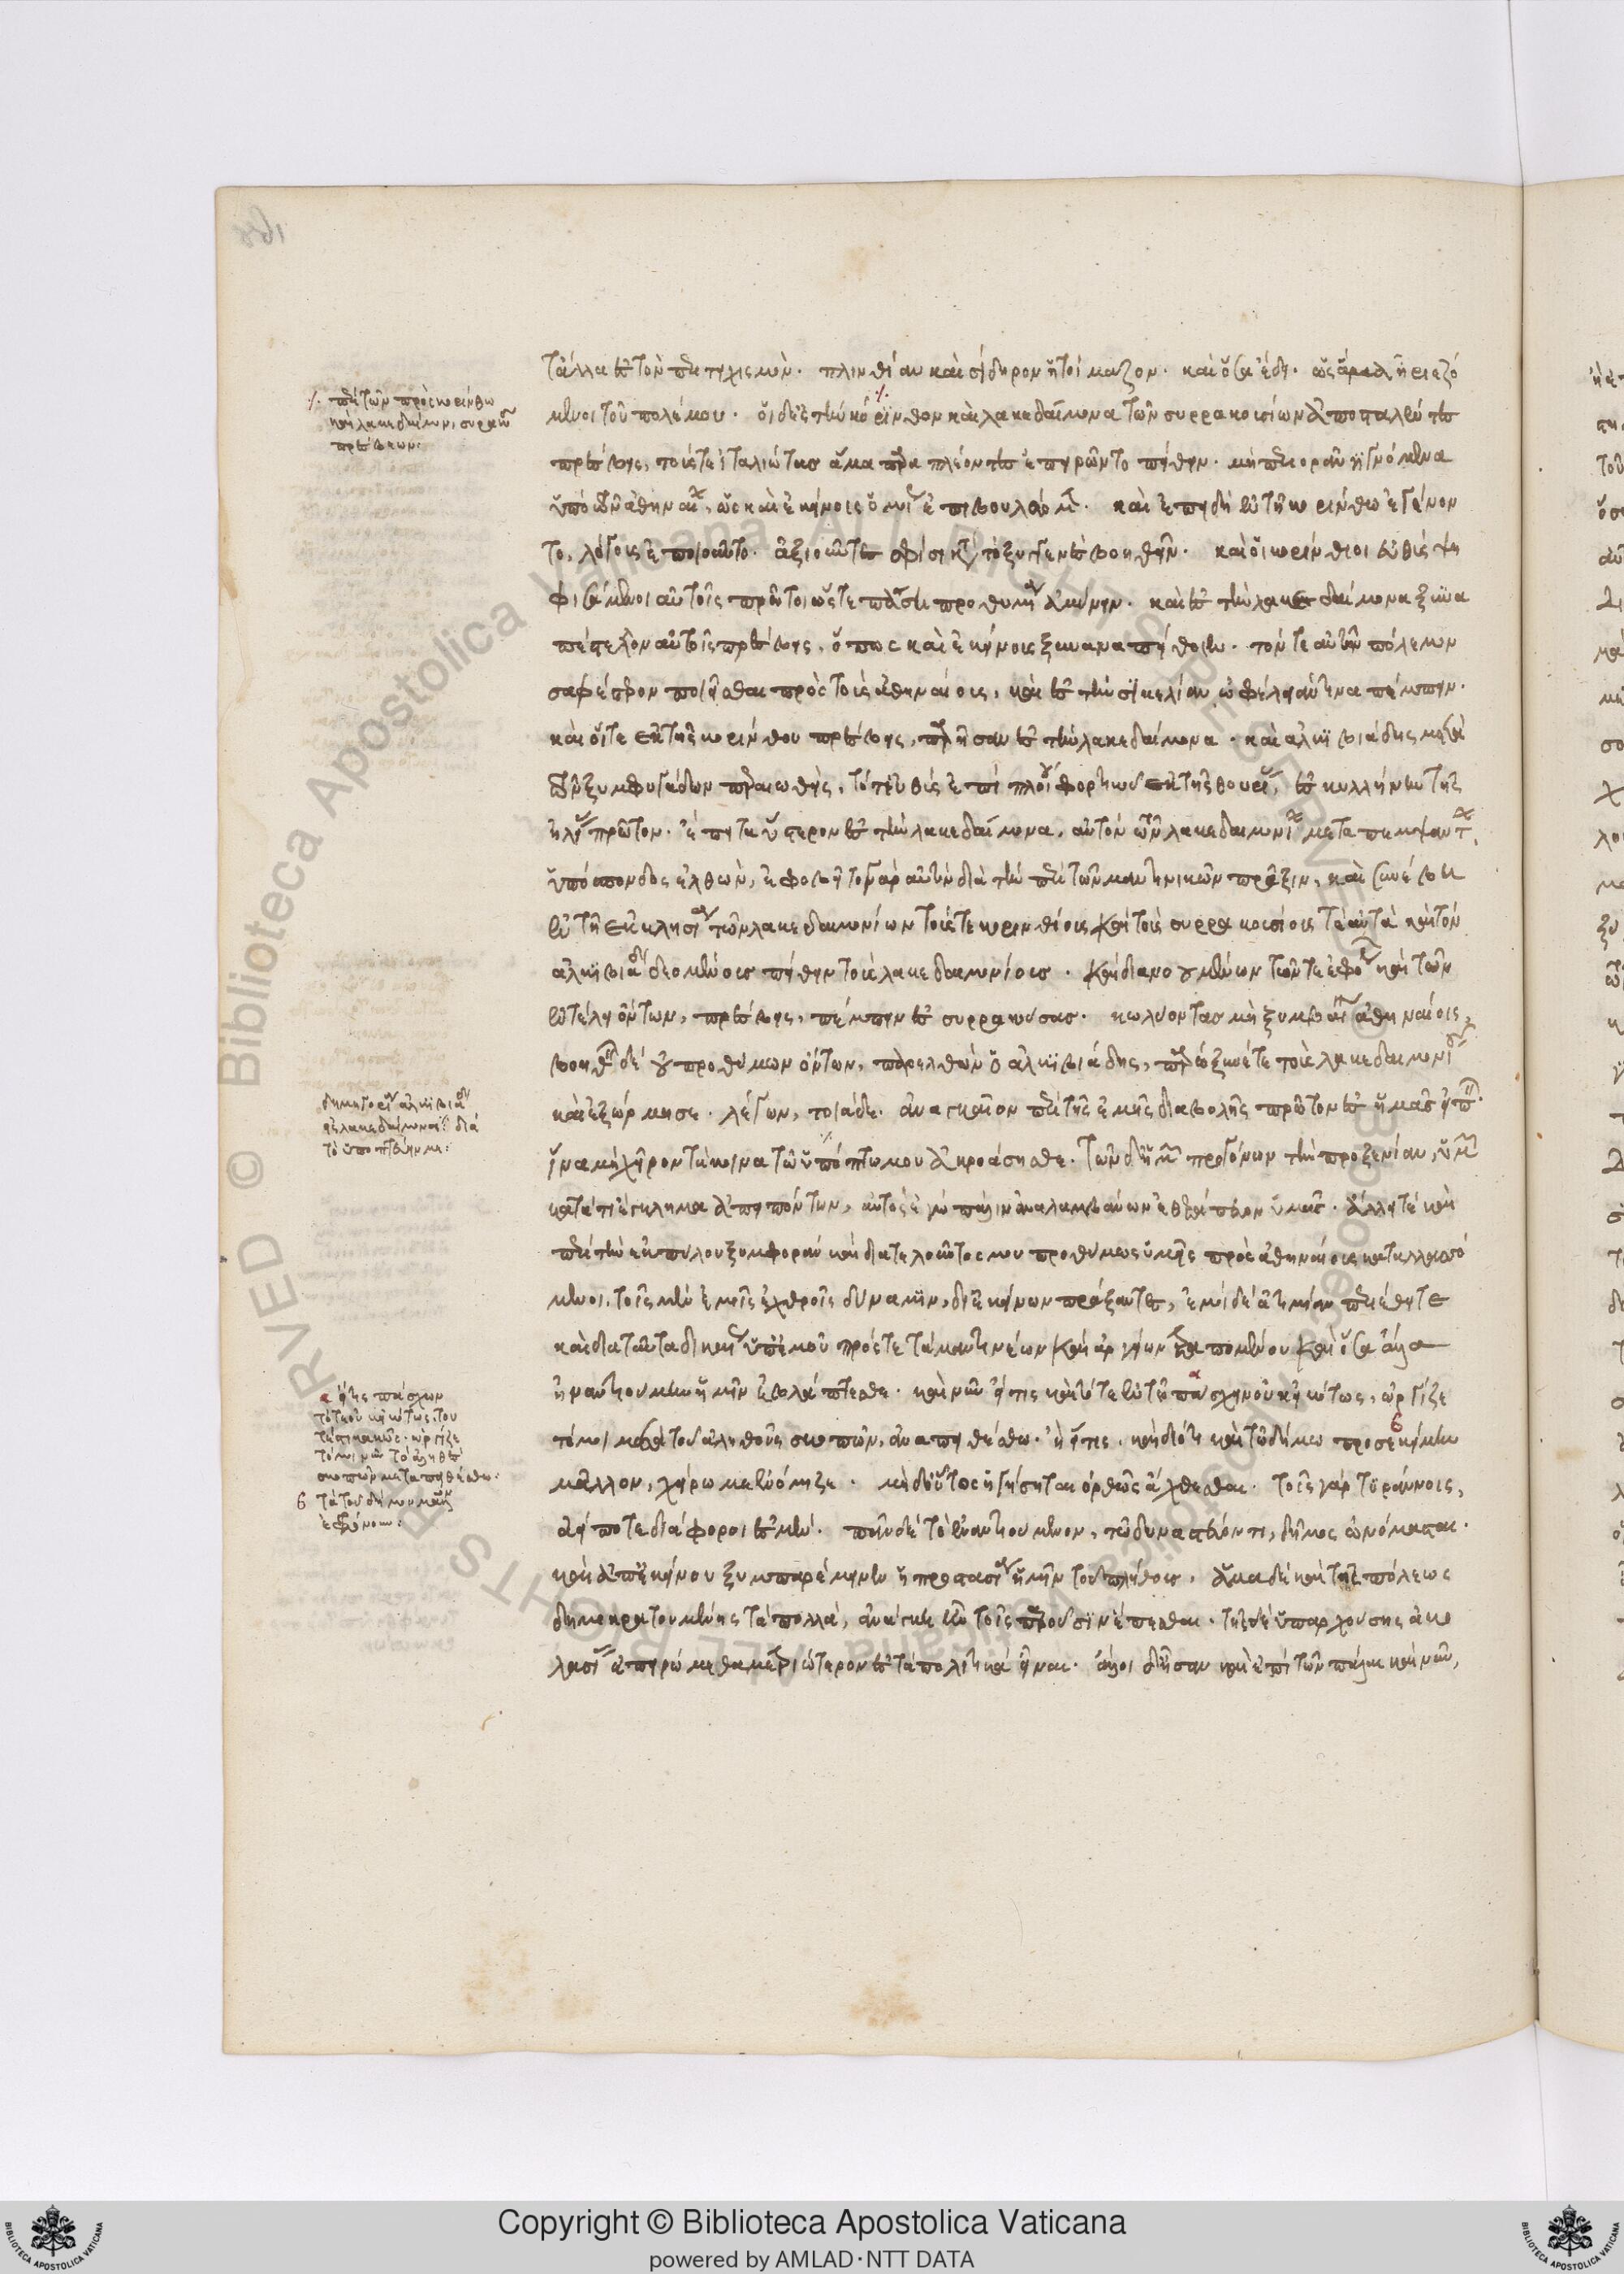 τἄλλα ἐς τὸν περιτειχισμὸν. πλινθία καὶ σίδηρον ἡτοίμαζον. καὶ ὅσα ἔδει. ὡς ἅμα ἦρι ἑξό
μενοι τοῦ πολέμου. οἱ δ' ἐς τὴν κόρινθον καὶ λακεδαίμονα τῶν συρρακοσίων ἀποσταλέντες
πρέσβεις, τούς τε ἰταλιώτας ἅμα παραπλέοντες ἐπειρῶντο πείθειν. μὴ περιορᾶν γιγνόμενα
ὑπὸ τῶν ἀθηναίων, ὡς καὶ ἐκείνοις ὁμοίως ἐπιβουλευόμενα. καὶ ἐπειδὴ ἐν τῇ κορίνθω ἐγένον
το, λόγους ἐποιοῦντο. ἀξιοῦντες σφίσι κατὰ τὸ ξυγγενὲς βοηθεῖν. καὶ οἱ κορίνθιοι εὐθὺς ψη
φισάμενοι αὐτοῖς πρῶτοι ὥστε πάση προθυμία ἀμύνειν. καὶ ἐς τὴν λακεδαίμονα ξυνα
πέστελλον αὐτοῖς πρέσβεις, ὅπως καὶ ἐκείνους ξυναναπείθοιεν. τόν τε αὐτὸν πόλεμον
σαφέστερον ποιεῖσθαι πρὸς τοὺς ἀθηναίους, καὶ ἐς τὴν σικελίαν ὠφέλειάν τινα πέμπειν.
καὶ οἵ τε ἐκ τῆς κορίνθου πρέσβεις, παρῆσαν ἐς τὴν λακεδαίμονα. καὶ ἀλκιβιάδης μετὰ
τῶν ξυμφυγάδων περαιωθεὶς, τότ' εὐθὺς ἐπὶ πλοίου φορτικοῦ ἐκ τῆς θουρίας, ἐς κυλλήνην τῆς
ἠλείας πρῶτον. ἔπειτα ὕστερον ἐς τὴν λακεδαίμονα, αὐτῶν τῶν λακεδαιμονίων μεταπεμψάντων,
ὑπόσπονδος ἐλθών, ἐφοβεῖτο γὰρ αὐτοὺς διὰ τὴν περὶ τῶν μαντινικῶν πρᾶξιν, καὶ ξυνέβη
ἐν τῇ ἐκκλησία τῶν λακεδαιμονίων τούς τε κορινθίους καὶ τοὺς συρρακοσίους τὰ αὐτὰ καὶ τὸν
ἀλκιβιάδην δεομένους πείθειν τοὺς λακεδαιμονίους. καὶ διανοουμένων τῶν τε ἐφόρων καὶ τῶν
ἐν τέλει ὄντων, πρέσβεις, πέμπειν ἐς συρρακούσας. κωλύοντας μὴ ξυμβαίνειν ἀθηναίοις,
βοηθεῖν δὲ οὐ προθύμων ὄντων, παρελθὼν ὁ ἀλκιβιάδης, παρώξυνέ τε τοὺς λακεδαιμονίους
καὶ ἐξώρμησε. λέγων, τοιάδε. ἀναγκαῖον περὶ τῆς ἐμῆς διαβολῆς πρῶτον ἐς ὑμᾶς εἰπεῖν.
ἵνα μὴ χεῖρον τὰ κοινὰ τῶ ὑπόπτω μου ἀκροάσησθε. τῶν δ' ἡμῶν προγόνων τὴν προξενίαν, ὑμῶν
κατά τι ἔγκλημα ἀπειπόντων, αὐτὸς ἐγὼ πάλιν ἀναλαμβάνων ἐθεράπευον ὑμᾶς. ἄλλά τε καὶ
περὶ τὴν ἐκ πύλου ξυμφορὰν καὶ διατελοῦντός μου προθύμως ὑμεῖς πρὸς ἀθηναίους καταλλασσό
μενοι, τοῖς μὲν ἐμοῖς ἐχθροῖς δύναμιν, δι' ἐκείνων πράξαντες, ἐμοὶ δὲ ἀτιμίαν περιέθετε
καὶ διὰ ταῦτα δικαίως ὑπ' ἐμοῦ πρός τε τὰ μαντινέων καὶ ἀργείων τραπομένου καὶ ὅσα ἄλλα
ἠναντιούμην ὑμῖν ἐβλάπτεσθε. καὶ νῦν εἴ τις καὶ τότε ἐν τῶ πάσχειν οὐκ εἰκότως, ὠργίζε
τό μοι μετὰ τοῦ ἀληθοῦς σκοπῶν, ἀναπειθέσθω. ἢ εἴ τις. καὶ διότι καὶ τῶ δήμω προσεκείμην
μᾶλλον, χείρω με ἐνόμιζε. μηδ' οὕτως ἡγήσηται ὀρθῶς ἄχθεσθαι. τοῖς γὰρ τυράννοις,
ἀεί ποτε διάφοροι ἐσμέν. πᾶν δὲ τὸ ἐναντιούμενον, τῶ δυναστεύοντι, δῆμος ὠνόμασται.
καὶ ἀπ' ἐκείνου ξυμπαρέμεινεν ἡ προστασία ἡμῖν τοῦ πλήθους. ἅμα δὲ καὶ τῆς πόλεως
δημοκρατουμένης τὰ πολλὰ, ἀνάγκη ἦν τοῖς παροῦσιν ἕπεσθαι. τῆς δὲ ὑπαρχούσης ἀκο
λασίας ἐπειρώμεθα μετριώτερον ἐς τὰ πολιτικὰ εἶναι. ἄλλοι δ' ἦσαν καὶ ἐπὶ τῶν πάλαι καὶ νῦν,
περὶ τῶν πρὸς κορίνθω
καὶ λακεδαίμονι, συρακουσίων
πρέσβεων:
δημηγορία ἀλκιβιάδου
ἐς λακεδαιμονίους διὰ
τὸ ὑποπτεύεσθαι:
α εἴ τις πάσχων
τότε οὐκ εἰκότως, του
ὠργίζε
τό μοι νῦν τὸ ἀληθὲς
σκοπῶν μεταπειθέσθω:
β τὰ τοῦ δήμου μᾶλλον
ἐφρόνουν:
Copyright © Biblioteca Apostolica Vaticana
powered by AMLAD·NTT DATA